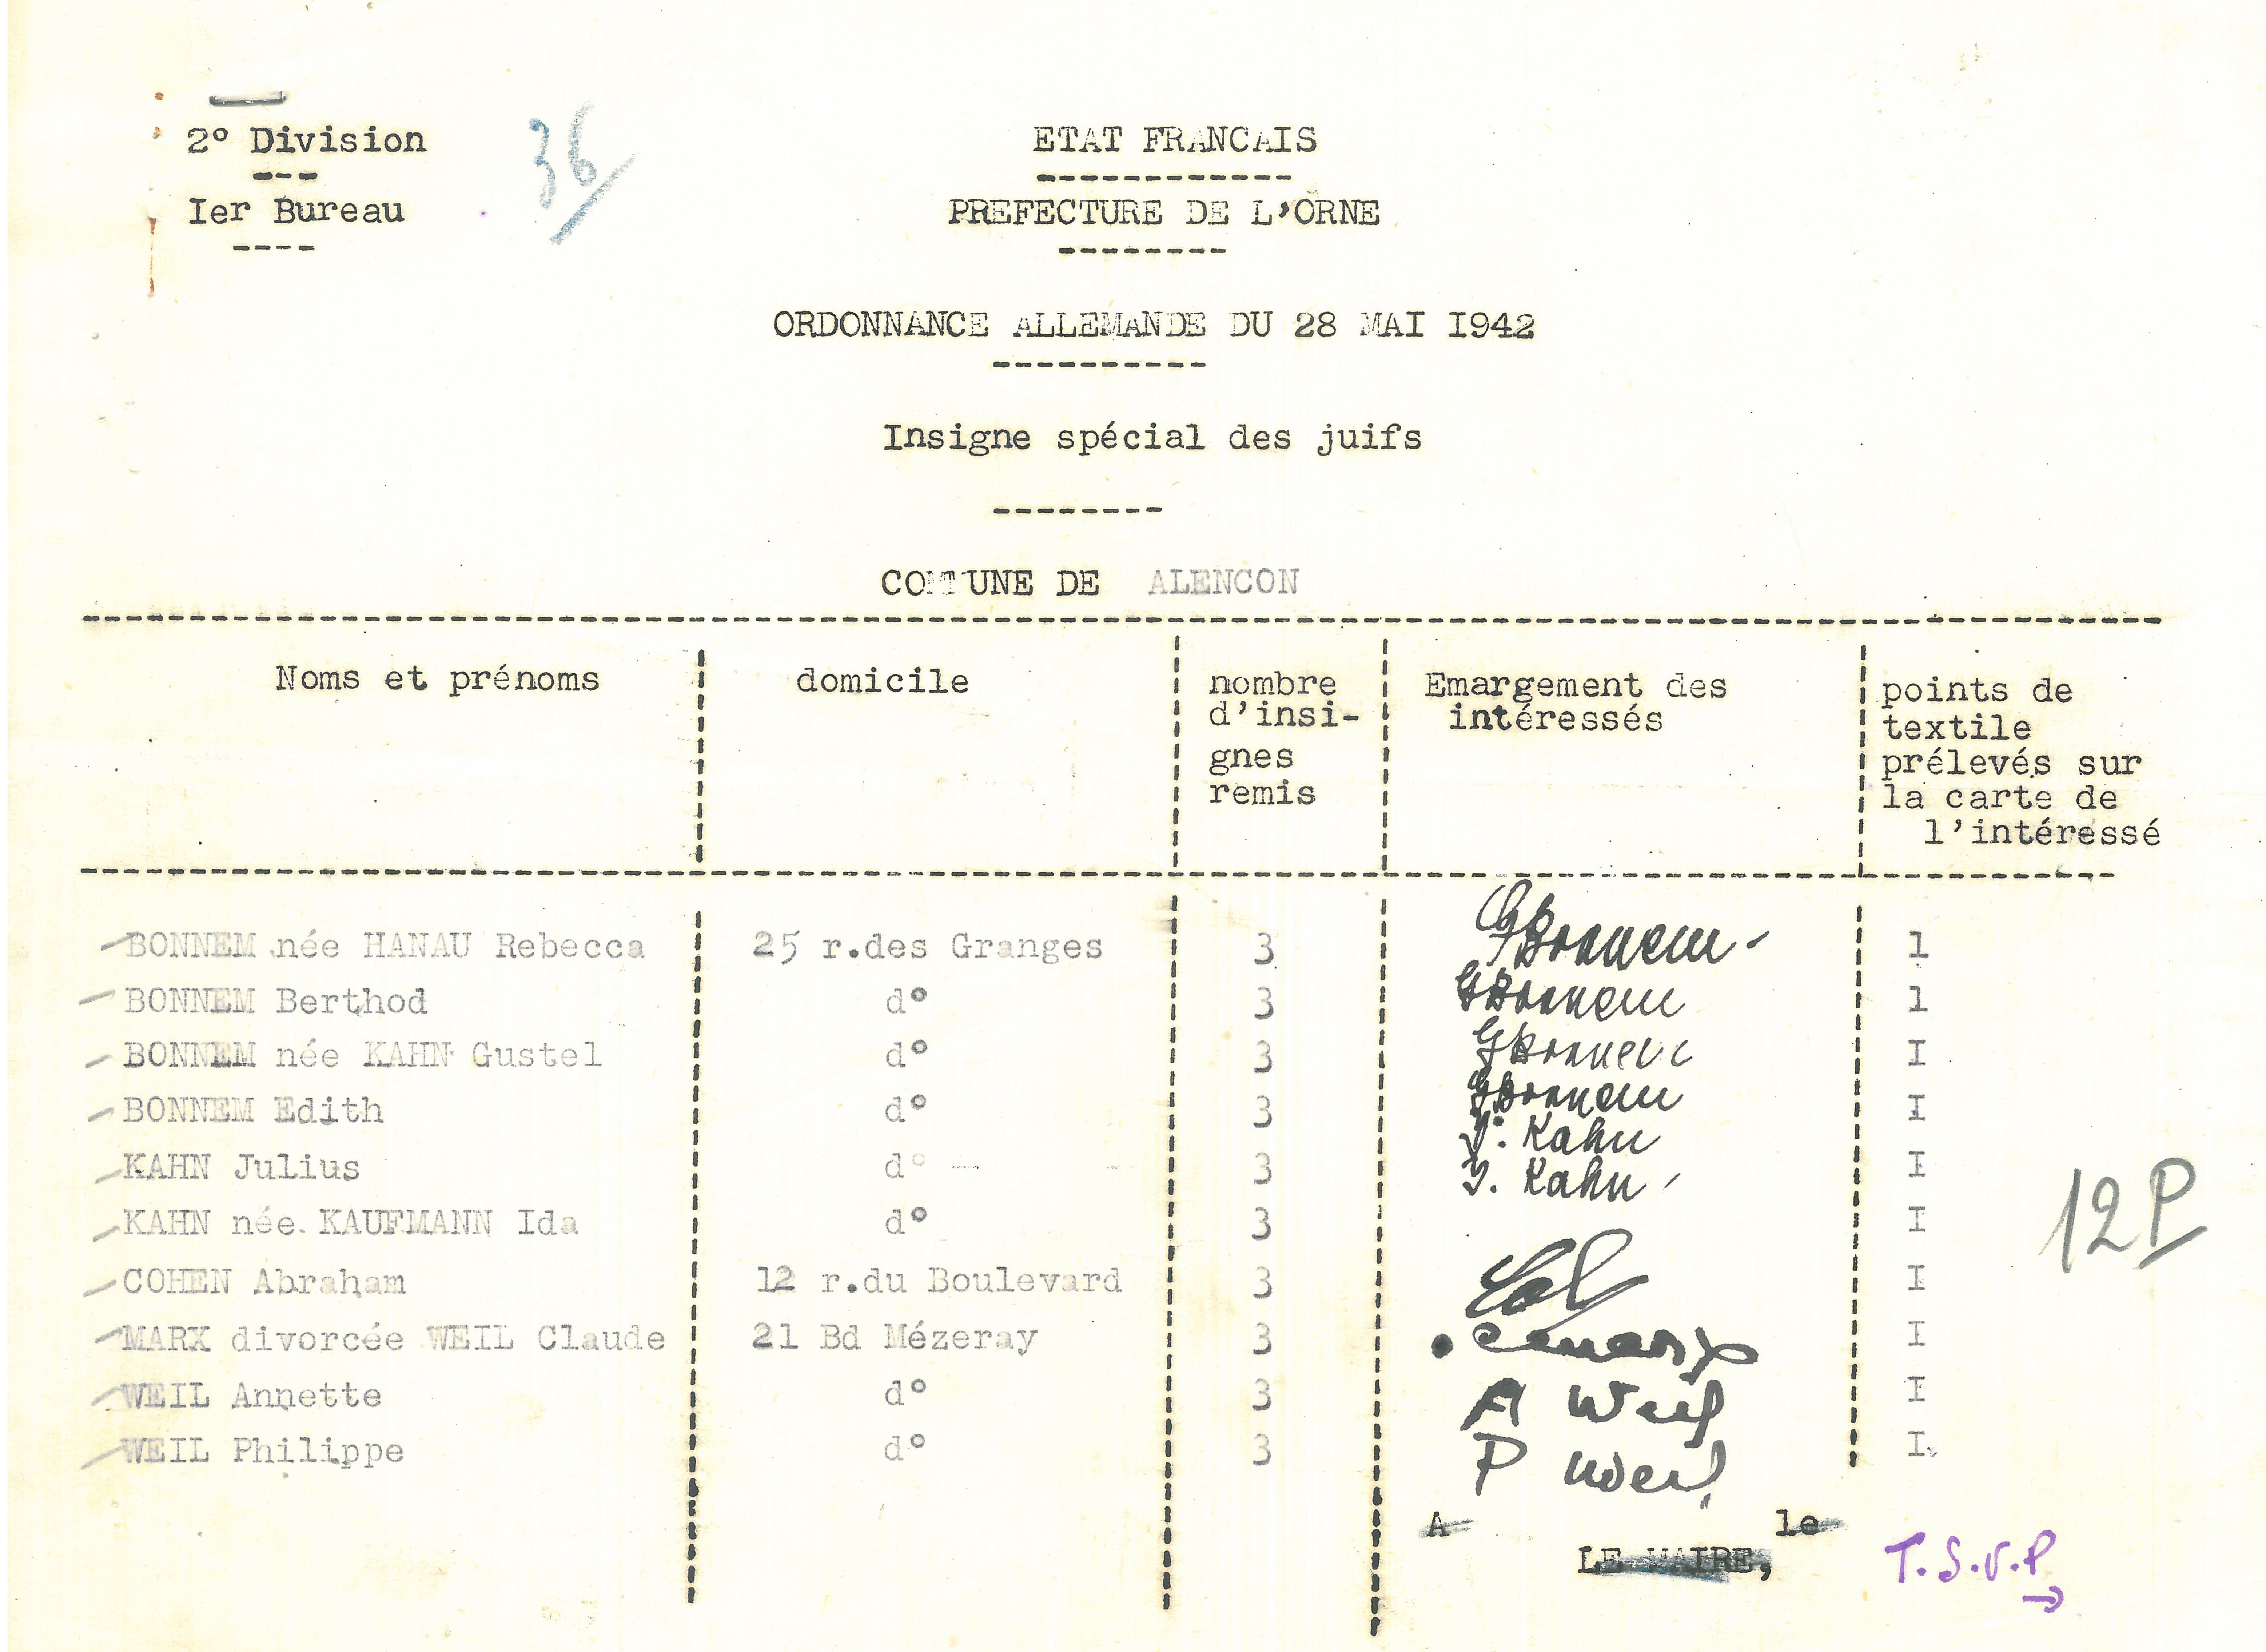 2° Division
36
Ier Bureau
ETAT FRANCAIS
PREFECTURE DE L'ORNE
ORDONNANCE ALLEMANDE DU 28 MAI I942
Insigne spécial des juifs
COMMUNE DE ALENCON
Noms et prénoms
domicile
nombre
d'insi-
gnes
remis
Emargement des
intéressés
points de
textile
prélevés sur
la carte de
l'intéressé
BONNEM née HANAU Rebecca 25 r.des Granges 3 GBonnem 1
BONNEM Berthod d° 3 GBonnem 1
BONNEM née KAHN Gustel d° 3 GBonnem I
BONNEM Edith d° 3 GBonnem I
KAHN Julius d° 3 J. Kahn I
KAHN née KAUFMANN Ida d° 3 J. Kahn I
12P
COHEN Abraham 12 r.du Boulevard 3 I
MARX divorcée WEIL Claude 21 Bd Mézeray 3 I
WEIL Annette d° 3 A Weil I
WEIL Philippe d° 3 P Weil I
A le
LE MAIRE,
T.S.V.P
→